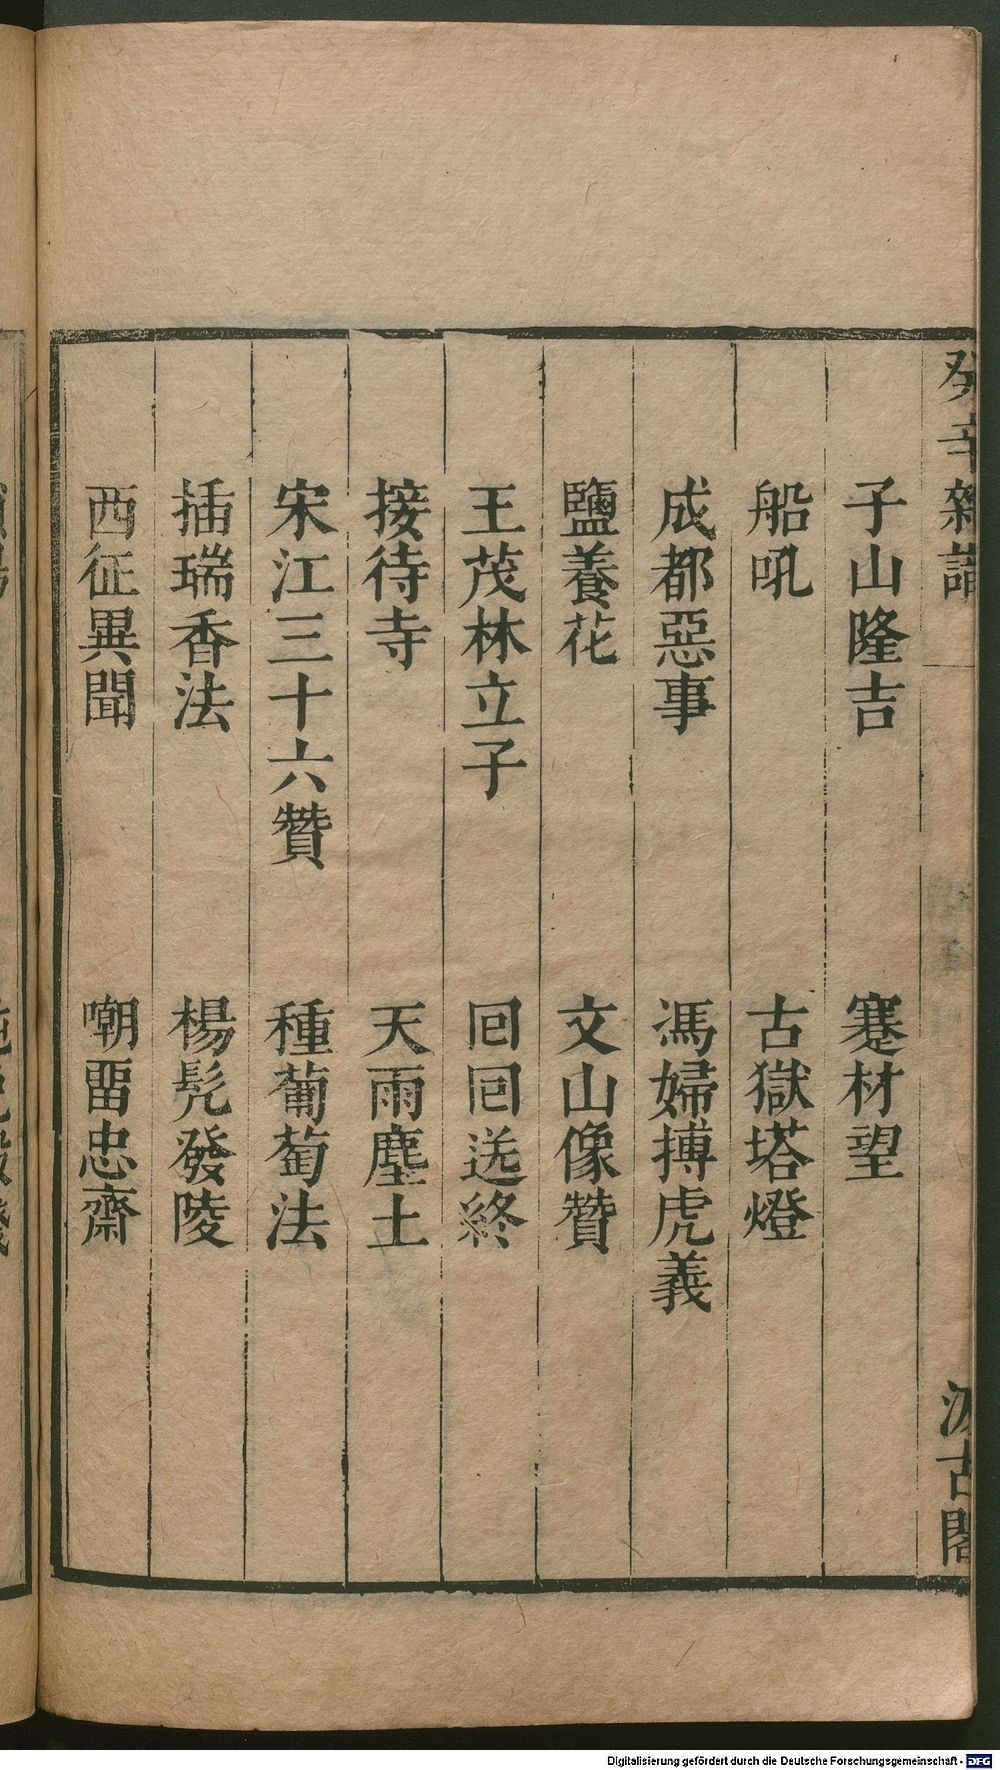 癸辛雜識
汲古閣
子山隆吉 蹇材望
船吼 古獄塔燈
成都惡事 馮婦搏虎義
鹽養花 文山像贊
王茂林立子 囘囘送終
接待寺 天雨塵土
宋江三十六贊 種葡萄法
插瑞香法 楊髡發陵
西征異聞 嘲畱忠齋
Digitalisierung gefördert durch die Deutsche Forschungsgemeinschaft - DFG